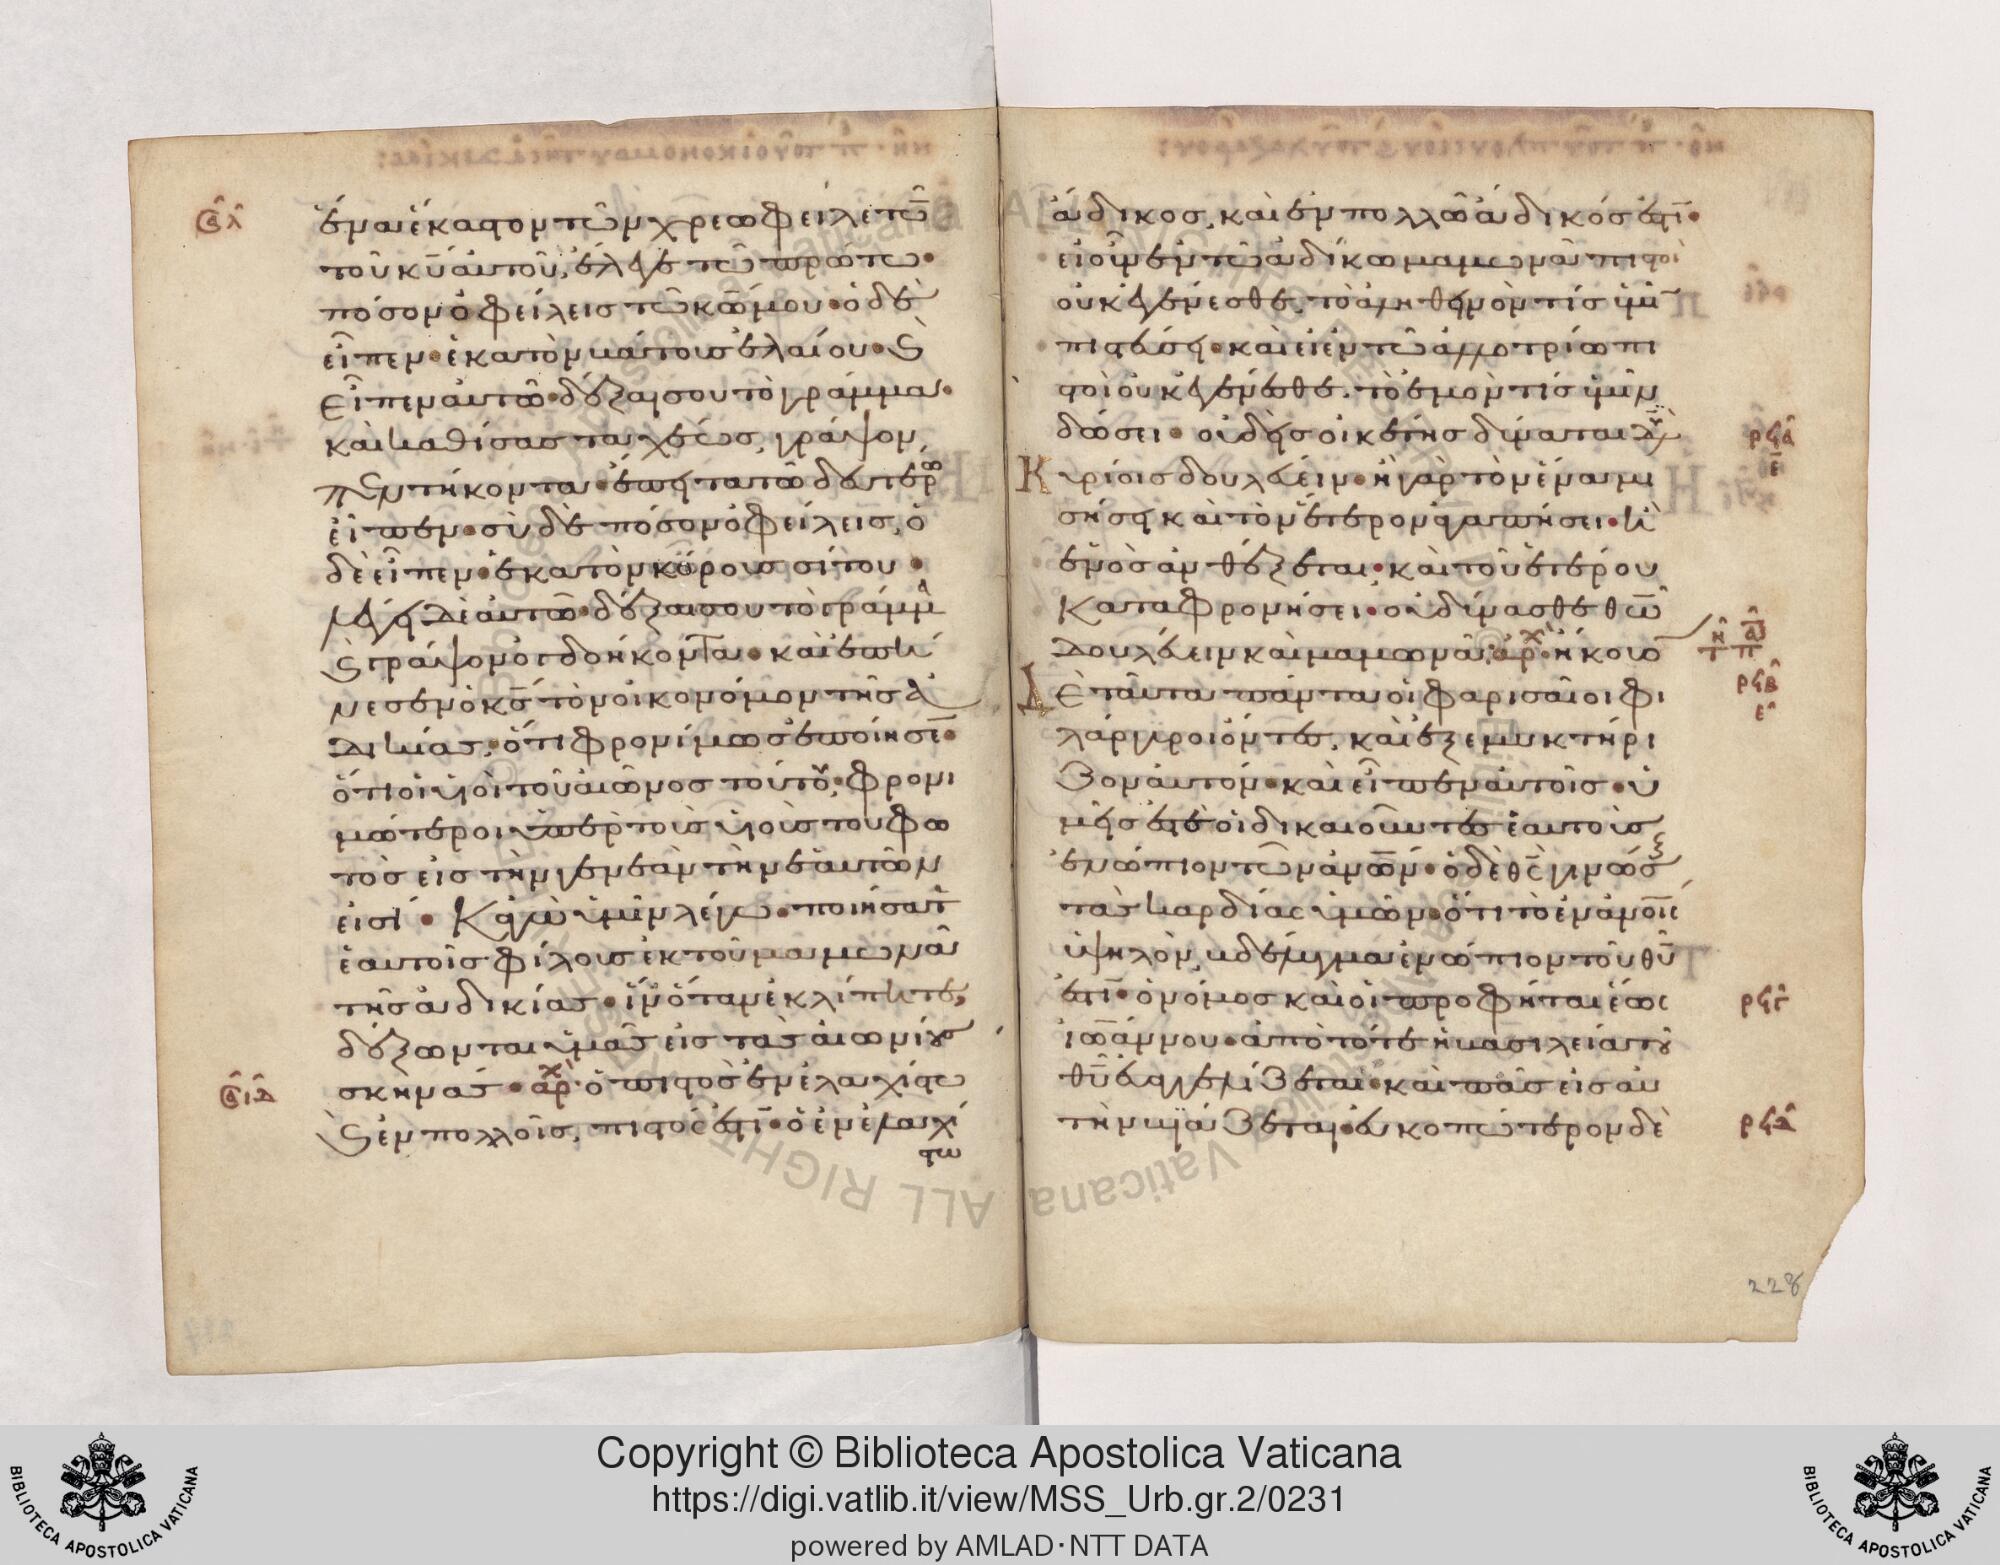 ἕνα ἕκαστον τῶν χρεωφειλετῶ̅
τοῦ κ̅υ̅ ἑαυτοῦ, ἔλεγε τῶ πρώτω·
πόσον ὀφείλεις τῶ κ̅ω̅ μου· ὁ δὲ
εἶπεν· ἑκατὸν βάτους ἐλαίου· ϗ
εἶπεν αὐτῶ· δέξαι σου τὸ γράμμα·
καὶ καθίσας ταχέως, γράψον
πεντήκοντα· ἔπειτα τῶ ἑτέρω
εἶπεν· σὺ δὲ πόσον ὀφείλεις, ὁ
δὲ εἶπεν· ἑκατὸν κόρους σίτου·
λέγει αὐτῶ· δέξαι σου τὸ γράμμα
ϗ γράψον ὀγδοήκοντα· καὶ ἐπή
νεσεν ὁ κ̅ς̅ τὸν οἰκονόμον τῆς ἀ
δικίας, ὅτι φρονίμως ἐποίησε̅·
ὅτι οἱ υἱοὶ τοῦ αἰῶνος τούτου, φρονι
μώτεροι ὑπὲρ τοὺς υἱοὺς τοῦ φω
τὸς εἰς τὴν γενεὰν τὴν ἑαυτῶν
εἰσί· Κἀγὼ ὑμῖν λέγω· ποιήσατε
ἑαυτοῖς φίλους ἐκ τοῦ μαμωνᾶ
τῆς ἀδικίας· ἵν' ὅταν ἐκλίπητε,
δέξωνται ὑμᾶς εἰς τὰς αἰωνίους
σκηνάς· ἀρχ· ὁ πιστὸς ἐν ἐλαχίστω
ϗ ἐν πολλοῖς, πιστός ἐστι̅· ὁ ἐν ἐλαχί
στω
ἄδικος, καὶ ἐν πολλῶ ἄδικός ἐστι̅·
εἰ οὖν ἐν τῶ ἀδίκω μαμωνᾶ πιστοὶ
οὐκ ἐγένεσθε, τὸ ἀληθινὸν τίς ὑμῖ̅
πιστεύσει· καὶ εἰ ἐν τῶ ἀλλοτρίω πι
στοὶ οὐκ ἐγένεσθε. τὸ ἐμὸν τίς ὑμῖν
δώσει· οὐδεὶς οἰκέτης δύναται δυσὶ
Κυρίοις δουλεύειν· ἢ γὰρ τὸν ἕνα μι
σήσει καὶ τὸν ἕτερον ἀγαπήσει· ἢ
ἑνὸς ἀνθέξεται· καὶ τοῦ ἑτέρου
καταφρονήσει· οὐ δύνασθε θ̅ω̅
δουλεύειν καὶ μαμωνᾶ· ἀρχ· ἤκουο̅
Δὲ ταῦτα πάντα οἱ φαρισαῖοι φι
λάργυροι ὄντες, καὶ ἐξεμυκτήρι
ζον αὐτόν· καὶ εἶπεν αὐτοῖς· ὑ
μεῖς ἐστὲ οἱ δικαιοῦντες ἑαυτοὺς
ἐνώπιον τῶν ἀν̅ω̅ν· ὁ δὲ θ̅ς̅ γινώσκει
τὰς καρδίας ὑμῶν· ὅτι τὸ ἐν ἀν̅ο̅ις
ὑψηλὸν, βδέλυγμα ἐνώπιον τοῦ θ̅υ̅
ἐστι̅· ὁ νόμος καὶ οἱ προφῆται ἕως
ἰω̅άννου· ἀπὸ τότε ἡ βασιλεία τοῦ
θ̅υ̅ εὐαγγελίζεται· καὶ πᾶς εἰς αὐ
τὴν βιάζεται· εὐκοπώτερον δὲ
ρϟα
ε
ρϟβ
ε
ρϟγ
ρϟδ
228
Copyright © Biblioteca Apostolica Vaticana
https://digi.vatlib.it/view/MSS_Urb.gr.2/0231
powered by AMLAD·NTT DATA
BIBLIOTECA APOSTOLICA VATICANA
BIBLIOTECA APOSTOLICA VATICANA